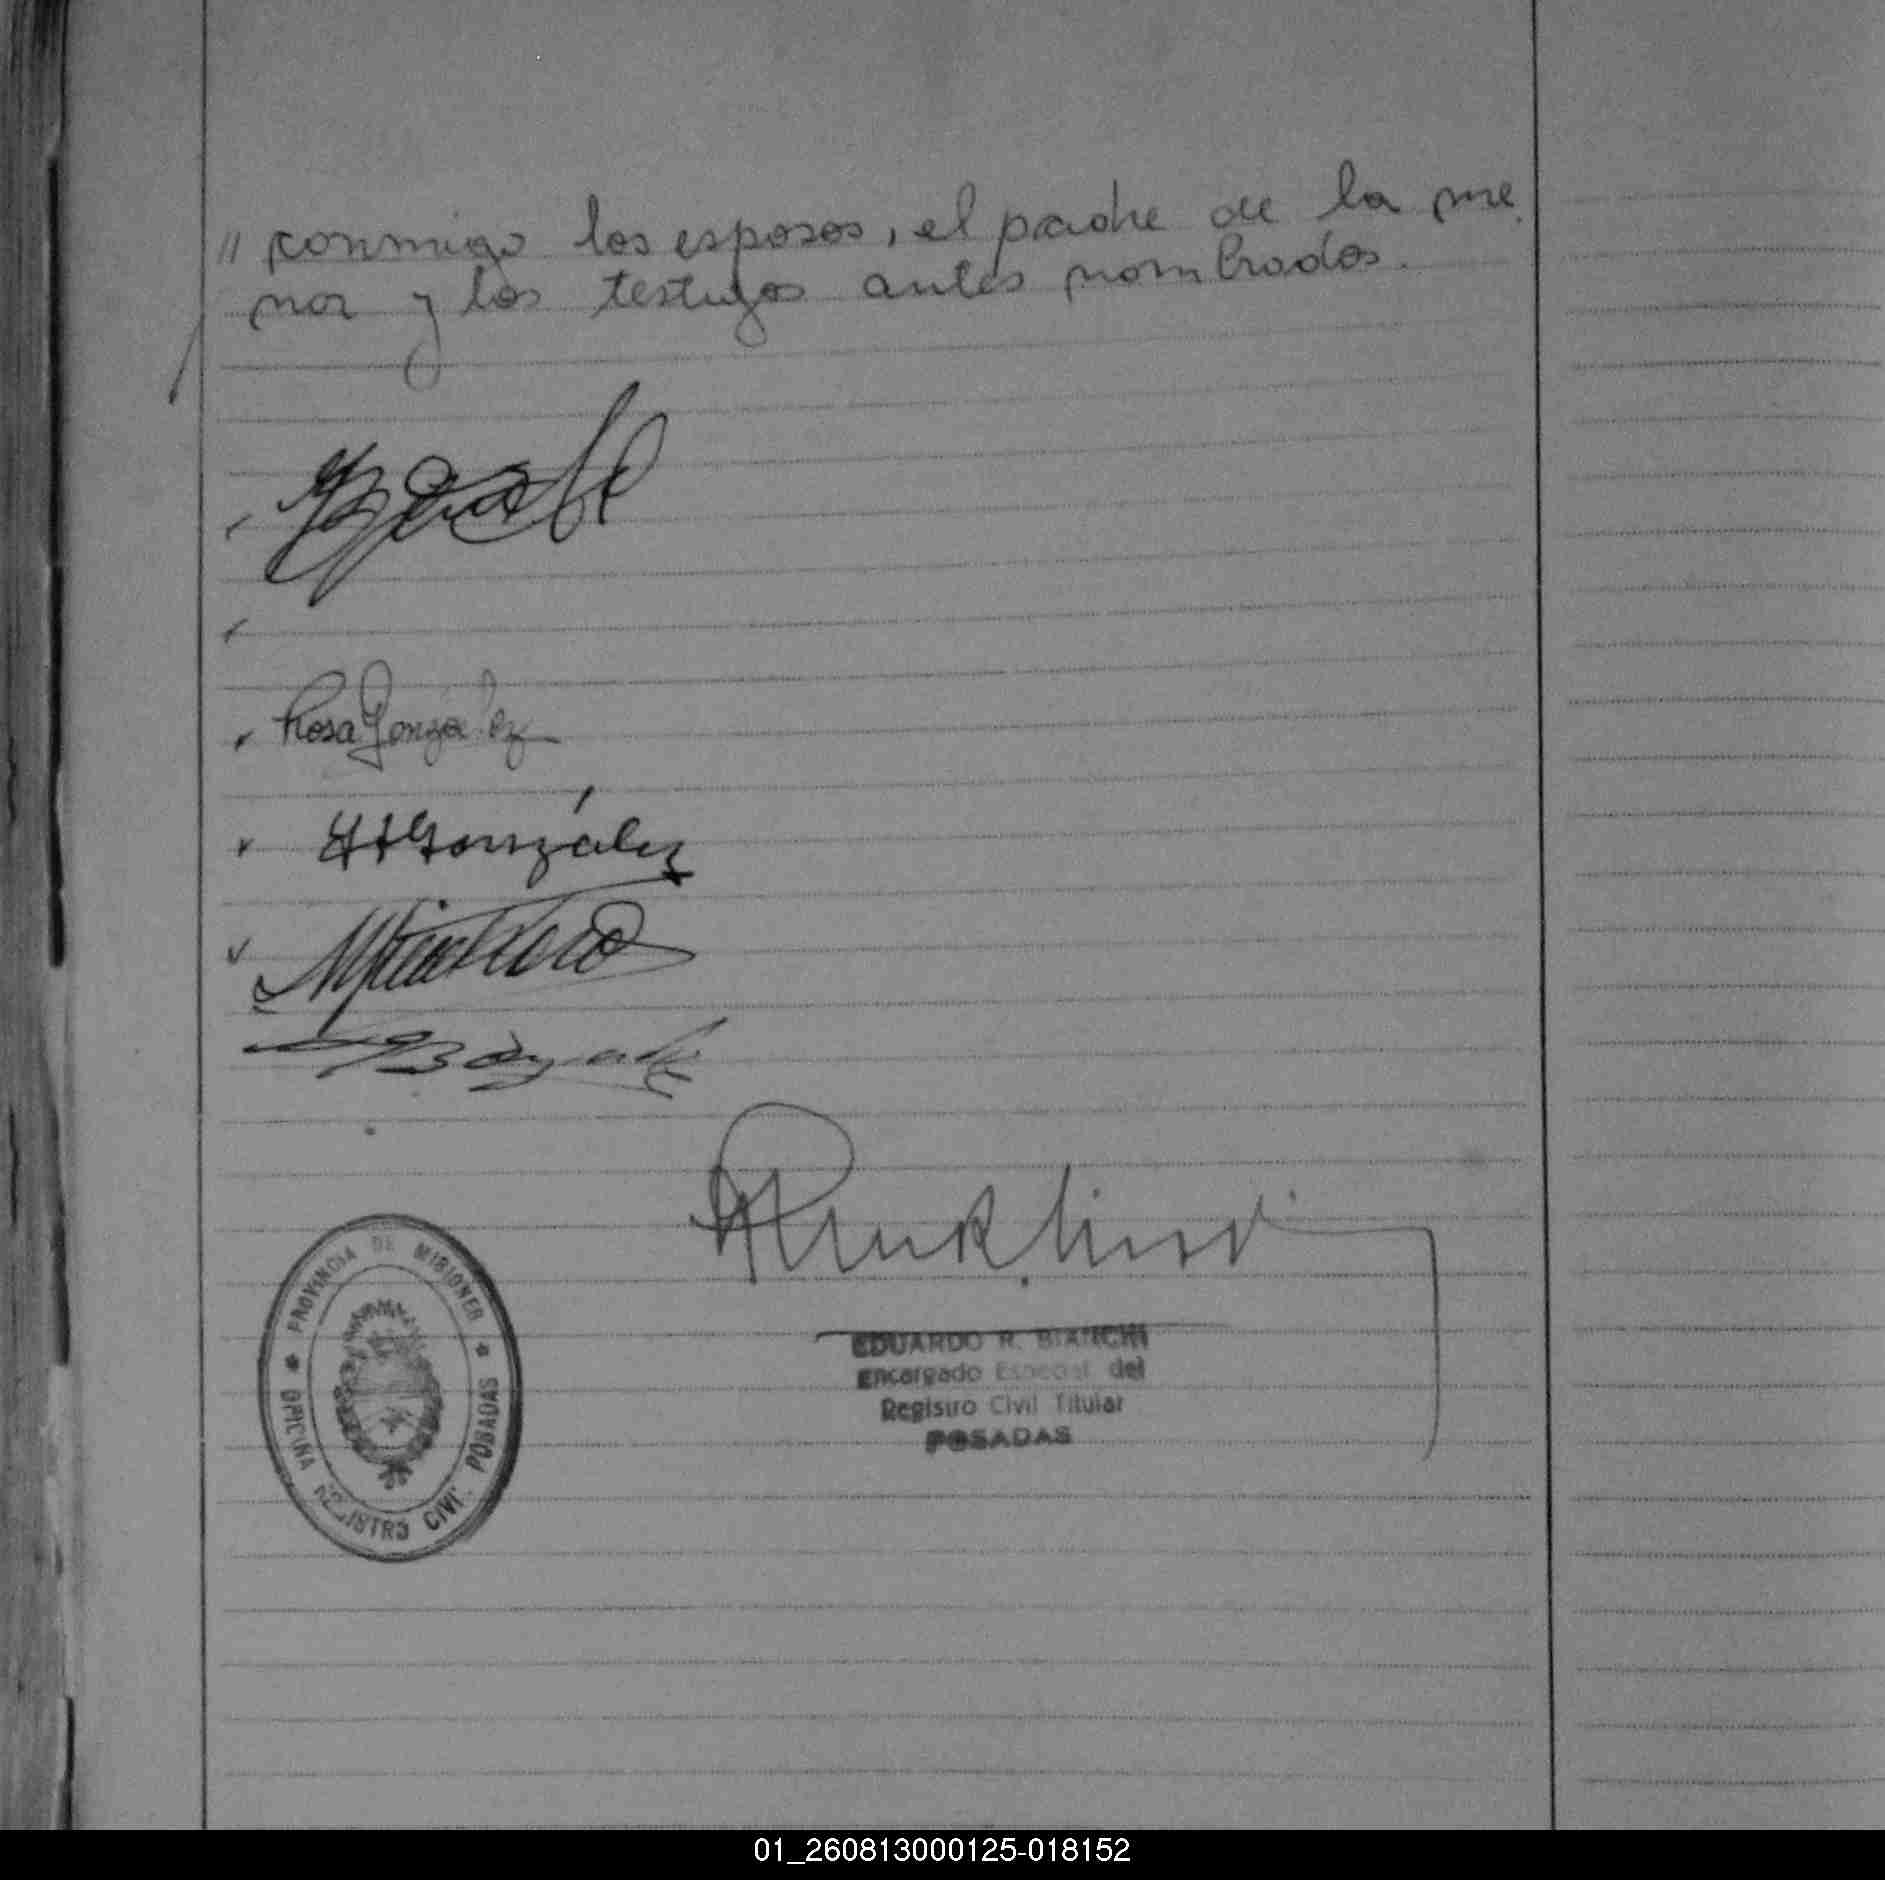 // conmigo los esposos, el padre de la me
nor y los testigos antes nombrados.
Rosa González
H González
PROVINCIA DE MISIONES
OFICINA REGISTRO CIVIL POSADAS
EDUARDO R. BIANCHI
Encargado Especial del
Registro Civil Titular
POSADAS
01_260813000125-018152